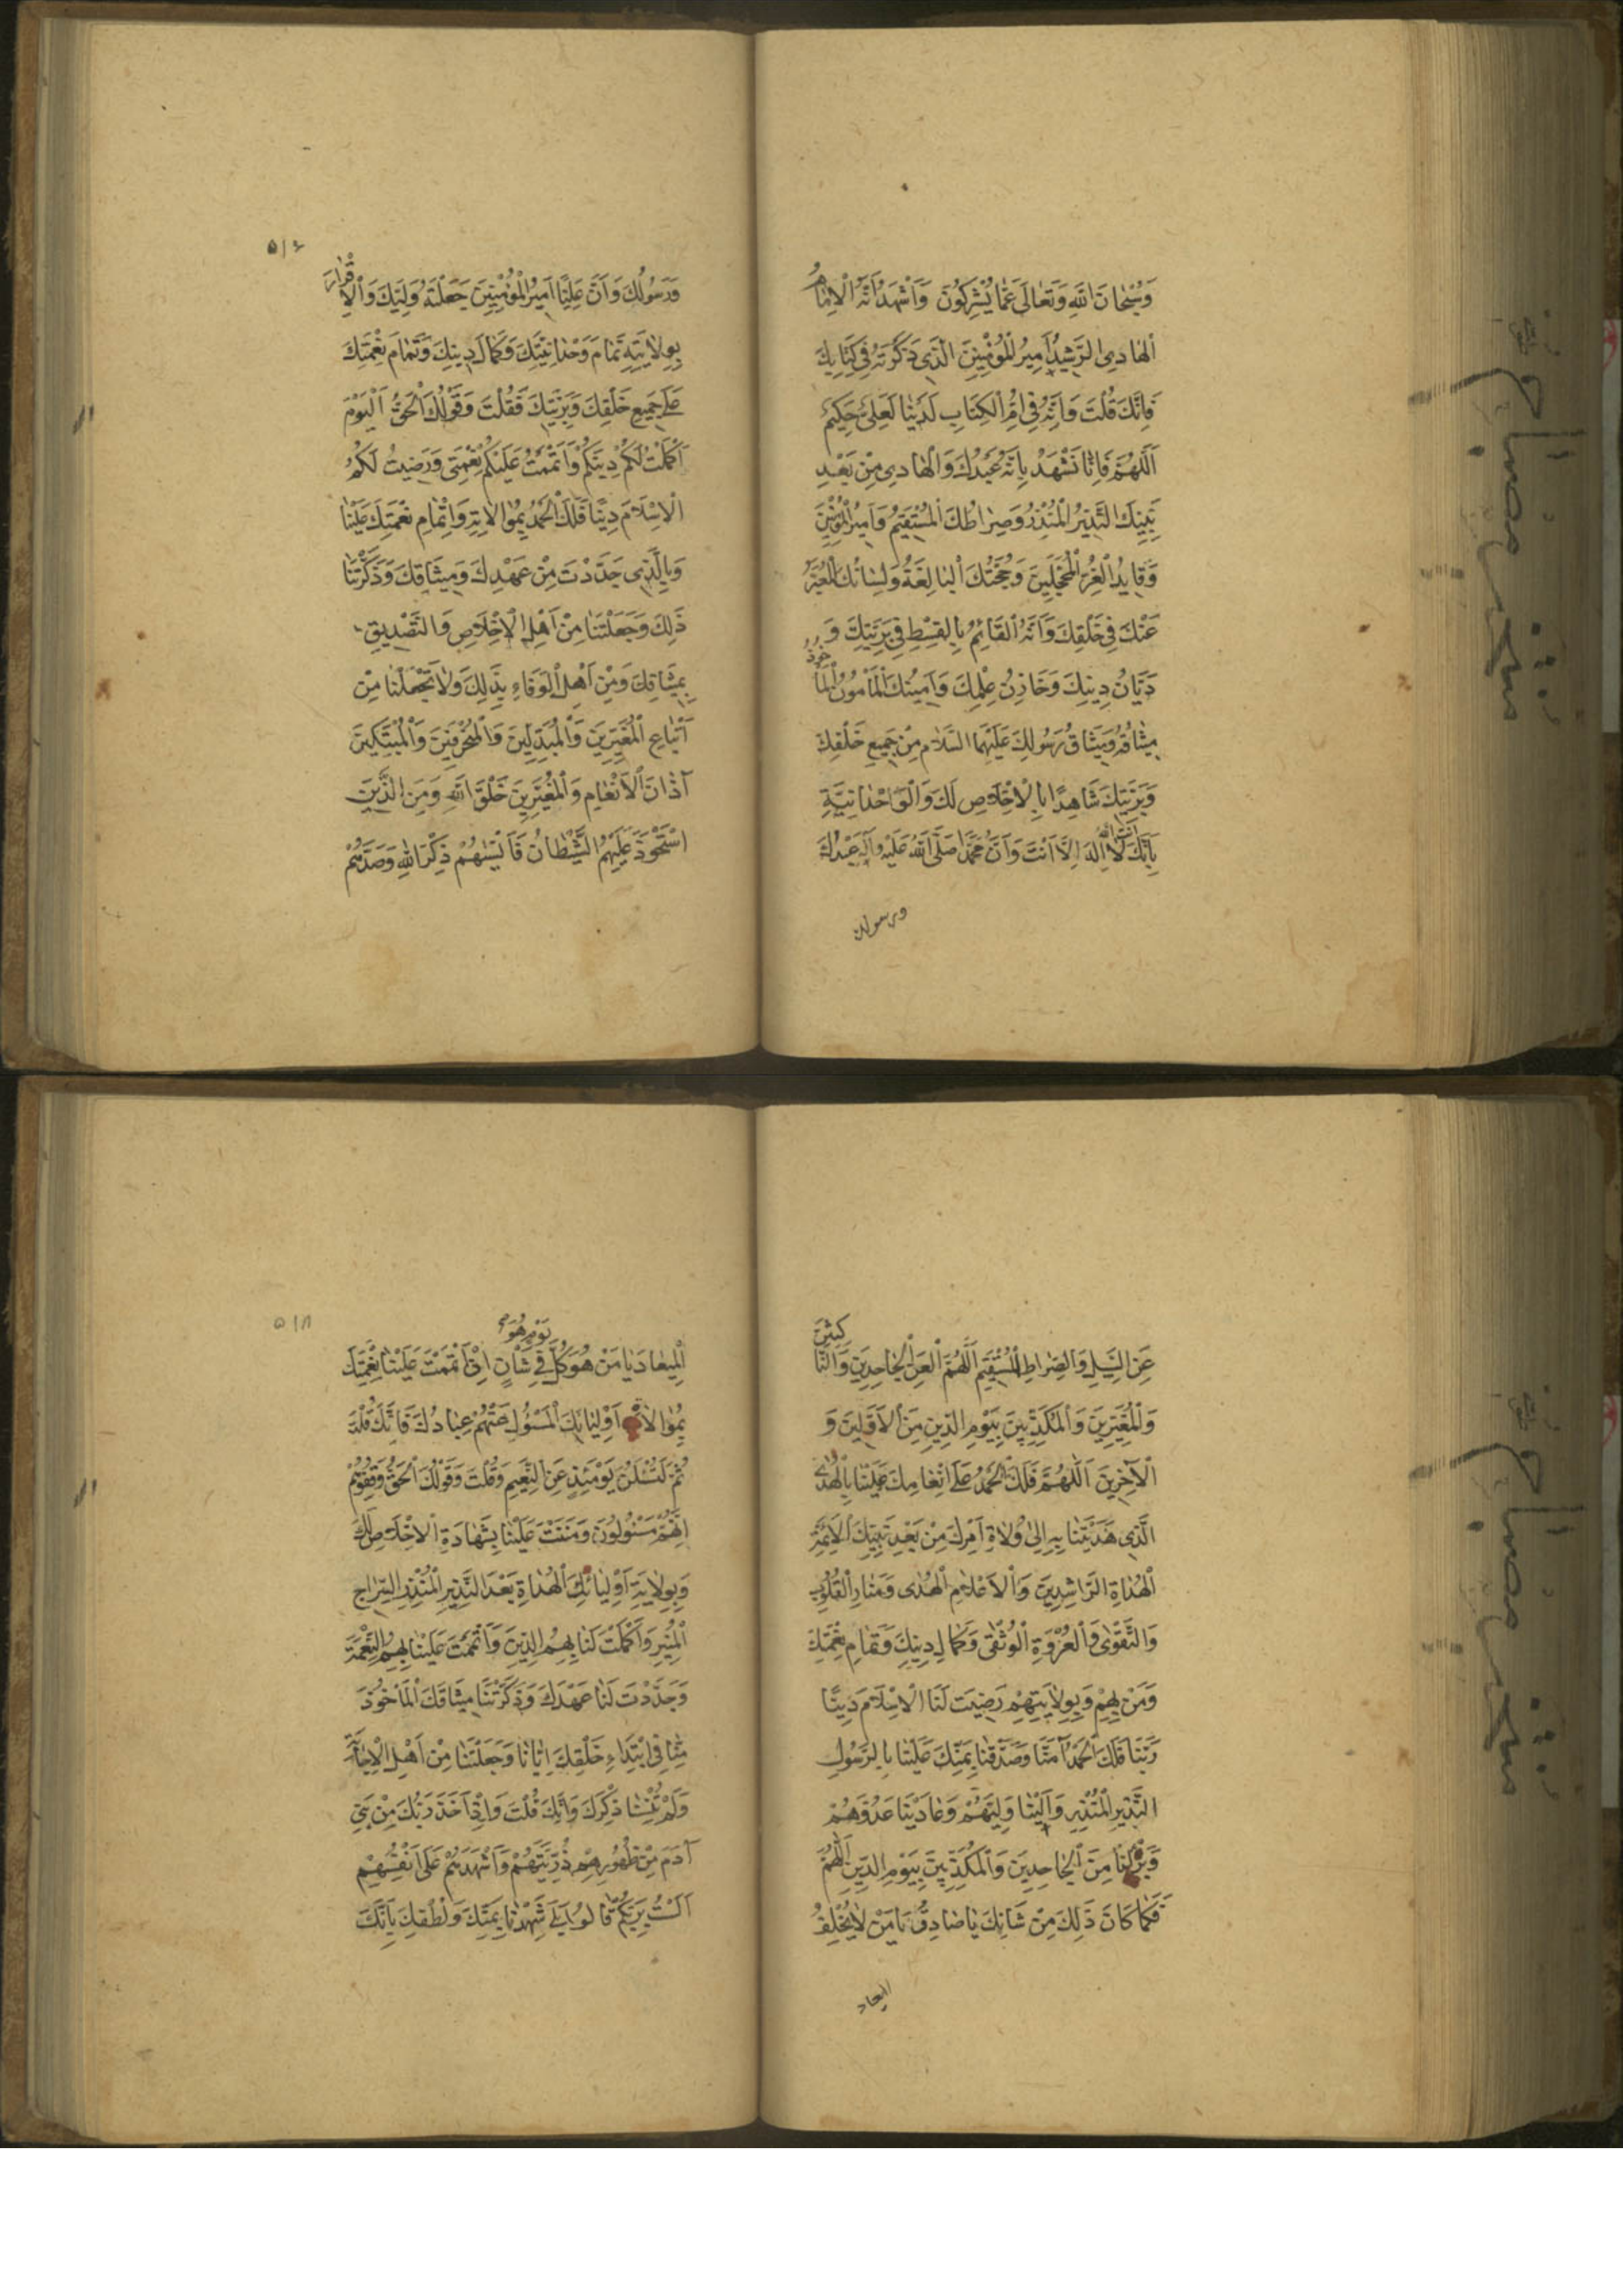 وَسُبْحَانَ اللَّهِ وَتَعَالَى عَمَّا يُشْرِكُونَ وَأَشْهَدُ أَنَّهُ الْإِمَامُ
الْهَادِي الرَّشِيدُ أَمِيرُ الْمُؤْمِنِينَ الَّذِي ذَكَرْتَهُ فِي كِتَابِكَ
فَإِنَّكَ قُلْتَ وَإِنَّهُ فِي أُمِّ الْكِتَابِ لَدَيْنَا لَعَلِيٌّ حَكِيمٌ
اَللَّهُمَّ فَإِنَّا نَشْهَدُ بِأَنَّهُ عَبْدُكَ وَالْهَادِي مِنْ بَعْدِ
نَبِيِّكَ النَّذِيرُ الْمُنْذِرُ وَصِرَاطُكَ الْمُسْتَقِيمُ وَأَمِيرُ الْمُؤْمِنِينَ
وَقَايِدُ الْغُرِّ الْمُحَجَّلِينَ وَحُجَّتُكَ الْبَالِغَةُ وَلِسَانُكَ الْمُعَبِّرُ
عَنْكَ فِي خَلْقِكَ وَأَنَّهُ الْقَائِمُ بِالْقِسْطِ فِي بَرِيَّتِكَ وَ
دَيَّانُ دِينِكَ وَخَازِنُ عِلْمِكَ وَأَمِينُكَ الْمَأْمُونُ الْمَأْخُوذُ
مِيثَاقُهُ وَمِيثَاقُ رَسُولِكَ عَلَيْهِمَا السَّلَامُ مِنْ جَمِيعِ خَلْقِكَ
وَبَرِيَّتِكَ شَاهِدًا بِالْإِخْلَاصِ لَكَ وَالْوَاحْدَانِيَّةِ
بِأَنَّكَ أَنْتَ اللَّهُ لَا إِلَهَ إِلَّا أَنْتَ وَأَنَّ مُحَمَّدًا صَلَّى اللَّهُ عَلَيْهِ وَآلِهِ عَبْدُكَ
ورسولك
٥١٦
وَرَسُولُكَ وَأَنَّ عَلِيًّا أَمِيرُ الْمُؤْمِنِينَ جَعَلْتَهُ وَلِيَّكَ وَالْإِقْرَارَ
بِوِلَايَتِهِ تَمَامَ وَحْدَانِيَّتِكَ وَكَمَالَ دِينِكَ وَتَمَامَ نِعْمَتِكَ
عَلَى جَمِيعِ خَلْقِكَ وَبَرِيَّتِكَ فَقُلْتَ وَقَوْلُكَ الْحَقُّ اَلْيَوْمَ
أَكْمَلْتُ لَكُمْ دِينَكُمْ وَأَتْمَمْتُ عَلَيْكُمْ نِعْمَتِي وَرَضِيتُ لَكُمُ
الْإِسْلَامَ دِينًا فَلَكَ الْحَمْدُ بِمُوَالَاتِهِ وَإِتْمَامِ نِعْمَتِكَ عَلَيْنَا
وَبِالَّذِي جَدَّدْتَ مِنْ عَهْدِكَ وَمِيثَاقِكَ وَذَكَّرْتَنَا
ذَلِكَ وَجَعَلْتَنَا مِنْ أَهْلِ الْإِخْلَاصِ وَالتَّصْدِيقِ
بِمِيثَاقِكَ وَمِنْ أَهْلِ الْوَفَاءِ بِذَلِكَ وَلَا تَجْعَلْنَا مِنْ
أَتْبَاعِ الْمُغَيِّرِينَ وَالْمُبَدِّلِينَ وَالْمُنْحَرِفِينَ وَالْمُبَتِّكِينَ
آذَانَ الْأَنْعَامِ وَالْمُغَيِّرِينَ خَلْقَ اللَّهِ وَمِنَ الَّذِينَ
اسْتَحْوَذَ عَلَيْهِمُ الشَّيْطَانُ فَأَنْسَاهُمْ ذِكْرَ اللَّهِ وَصَدَّهُمْ
عَنِ السَّبِيلِ وَالصِّرَاطِ الْمُسْتَقِيمِ اَللَّهُمَّ الْعَنِ الْجَاحِدِينَ وَالنَّاكِثِينَ
وَالْمُغَيِّرِينَ وَالْمُكَذِّبِينَ بِيَوْمِ الدِّينِ مِنَ الْأَوَّلِينَ وَ
الْآخِرِينَ اَللَّهُمَّ فَلَكَ الْحَمْدُ عَلَى إِنْعَامِكَ عَلَيْنَا بِالْهُدَى
الَّذِي هَدَيْتَنَا بِهِ إِلَى وُلَاةِ أَمْرِكَ مِنْ بَعْدِ نَبِيِّكَ الْأَئِمَّةِ
الْهُدَاةِ الرَّاشِدِينَ وَالْأَعْلَامِ الْهُدَى وَمَنَارِ الْقُلُوبِ
وَالتَّقْوَى وَالْعُرْوَةِ الْوُثْقَى وَكَمَالِ دِينِكَ وَتَمَامِ نِعْمَتِكَ
وَمَنْ بِهِمْ وَبِوِلَايَتِهِمْ رَضِيتَ لَنَا الْإِسْلَامَ دِينًا
رَبَّنَا فَلَكَ الْحَمْدُ آمَنَّا وَصَدَّقْنَا بِمَنِّكَ عَلَيْنَا بِالرَّسُولِ
النَّذِيرِ الْمُنْذِرِ وَالَيْنَا وَلِيَّهُمْ وَعَادَيْنَا عَدُوَّهُمْ
وَبَرِئْنَا مِنَ الْجَاحِدِينَ وَالْمُكَذِّبِينَ بِيَوْمِ الدِّينِ اَللَّهُمَّ
فَكَمَا كَانَ ذَلِكَ مِنْ شَانِكَ يَا صَادِقُ يَا مَنْ لَا يُخْلِفُ
الميعاد
٥١٨
الْمِيعَادَ يَا مَنْ هُوَ كُلَّ يَوْمٍ هُوَ فِي شَأْنٍ إِذْ أَتْمَمْتَ عَلَيْنَا نِعْمَتَكَ
بِمُوَالَاةِ أَوْلِيَائِكَ الْمَسْؤُلِ عَنْهُمْ عِبَادُكَ فَإِنَّكَ قُلْتَ
ثُمَّ لَتُسْئَلُنَّ يَوْمَئِذٍ عَنِ النَّعِيمِ وَقُلْتَ وَقَوْلُكَ الْحَقُّ وَقِفُوهُمْ
إِنَّهُمْ مَسْئُولُونَ وَمَنَنْتَ عَلَيْنَا بِشَهَادَةِ الْإِخْلَاصِ لَكَ
وَبِوِلَايَةِ أَوْلِيَائِكَ الْهُدَاةِ بَعْدَ النَّذِيرِ الْمُنْذِرِ السِّرَاجِ
الْمُنِيرِ وَأَكْمَلْتَ لَنَا بِهِمُ الدِّينَ وَأَتْمَمْتَ عَلَيْنَا بِهِمُ النِّعْمَةَ
وَجَدَّدْتَ لَنَا عَهْدَكَ وَذَكَّرْتَنَا مِيثَاقَكَ الْمَأْخُوذَ
مِنَّا فِي ابْتِدَاءِ خَلْقِكَ إِيَّانَا وَجَعَلْتَنَا مِنْ أَهْلِ الْإِجَابَةِ
وَلَمْ تُنْسِنَا ذِكْرَكَ فَإِنَّكَ قُلْتَ وَإِذْ أَخَذَ رَبُّكَ مِنْ بَنِي
آدَمَ مِنْ ظُهُورِهِمْ ذُرِّيَّتَهُمْ وَأَشْهَدَهُمْ عَلَى أَنْفُسِهِمْ
أَلَسْتُ بِرَبِّكُمْ قَالُوا بَلَى شَهِدْنَا بِمَنِّكَ وَلُطْفِكَ بِأَنَّكَ